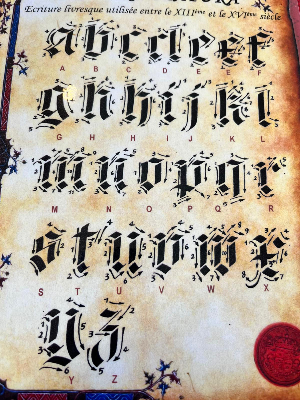 Ecriture livresque utilisée entre le XIIIème et le XVIème siècle
a b c d e f
A B C D E F
g h i j k l
G H I J K L
m n o p q r
M N O P Q R
s t u v w x
S T U V W X
y z
Y Z